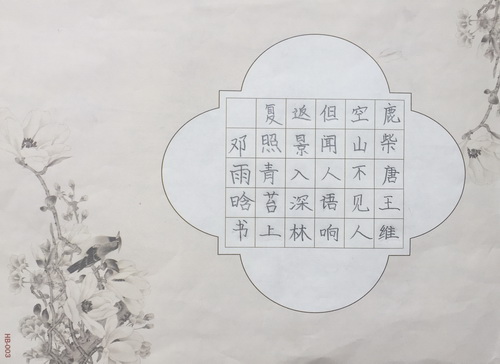 鹿柴唐王维
空山不见人
但闻人语响
返景入深林
复照青苔上
邓雨晗书
HB-003